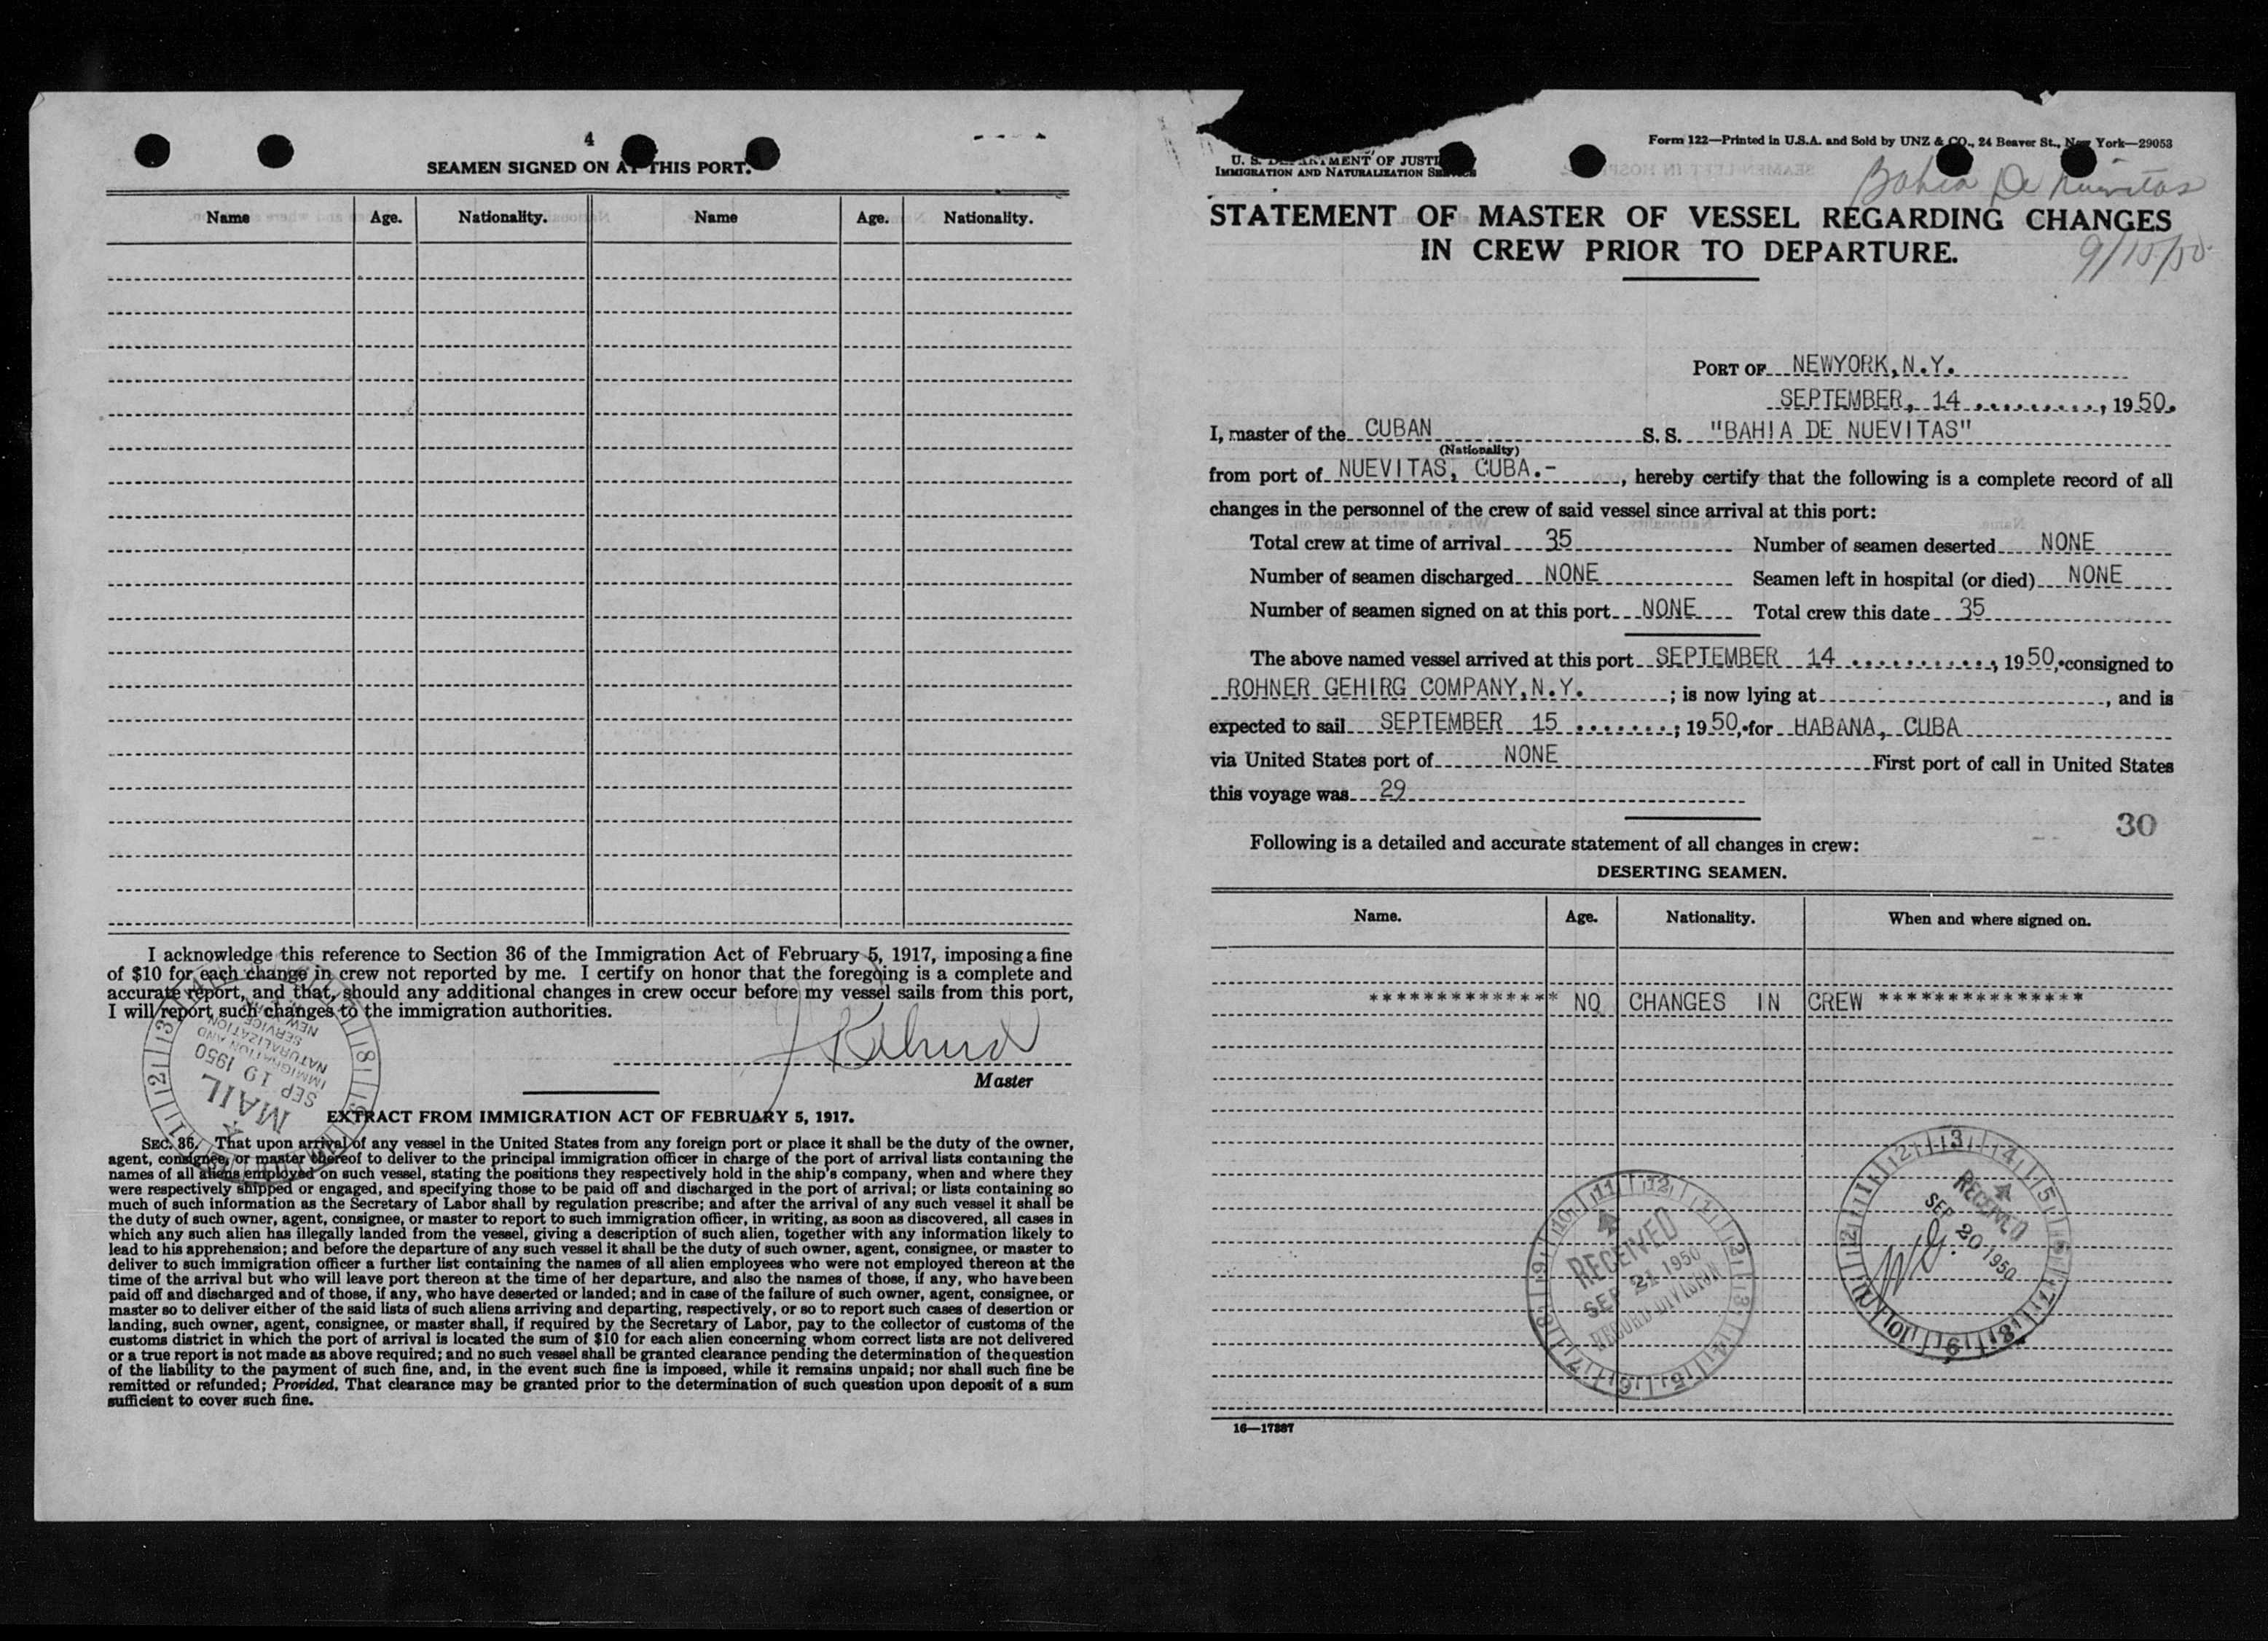 4
SEAMEN SIGNED ON AT THIS PORT.
Name Age. Nationality. Name Age. Nationality.
I acknowledge this reference to Section 36 of the Immigration Act of February 5, 1917, imposing a fine
of $10 for each change in crew not reported by me. I certify on honor that the foregoing is a complete and
accurate report, and that, should any additional changes in crew occur before my vessel sails from this port,
I will report such changes to the immigration authorities.
Master
MAIL
SEP 19 1950
IMMIGRATION AND
NATURALIZATION
SERVICE
NEW
EXTRACT FROM IMMIGRATION ACT OF FEBRUARY 5, 1917.
SEC. 36. That upon arrival of any vessel in the United States from any foreign port or place it shall be the duty of the owner,
agent, consignee, or master thereof to deliver to the principal immigration officer in charge of the port of arrival lists containing the
names of all aliens employed on such vessel, stating the positions they respectively hold in the ship's company, when and where they
were respectively shipped or engaged, and specifying those to be paid off and discharged in the port of arrival; or lists containing so
much of such information as the Secretary of Labor shall by regulation prescribe; and after the arrival of any such vessel it shall be
the duty of such owner, agent, consignee, or master to report to such immigration officer, in writing, as soon as discovered, all cases in
which any such alien has illegally landed from the vessel, giving a description of such alien, together with any information likely to
lead to his apprehension; and before the departure of any such vessel it shall be the duty of such owner, agent, consignee, or master to
deliver to such immigration officer a further list containing the names of all alien employees who were not employed thereon at the
time of the arrival but who will leave port thereon at the time of her departure, and also the names of those, if any, who have been
paid off and discharged and of those, if any, who have deserted or landed; and in case of the failure of such owner, agent, consignee, or
master so to deliver either of the said lists of such aliens arriving and departing, respectively, or so to report such cases of desertion or
landing, such owner, agent, consignee, or master shall, if required by the Secretary of Labor, pay to the collector of customs of the
customs district in which the port of arrival is located the sum of $10 for each alien concerning whom correct lists are not delivered
or a true report is not made as above required; and no such vessel shall be granted clearance pending the determination of the question
of the liability to the payment of such fine, and, in the event such fine is imposed, while it remains unpaid; nor shall such fine be
remitted or refunded; Provided, That clearance may be granted prior to the determination of such question upon deposit of a sum
sufficient to cover such fine.
Form 122—Printed in U.S.A. and Sold by UNZ & CO., 24 Beaver St., New York—29053
U. S. DEPARTMENT OF JUSTI
IMMIGRATION AND NATURALIZATION SERVICE
Bahia De Nuevitas
STATEMENT OF MASTER OF VESSEL REGARDING CHANGES
IN CREW PRIOR TO DEPARTURE.
9/15/50
PORT OF NEWYORK,N.Y.
SEPTEMBER, 14 ........., 1950.
I, master of the CUBAN S. S. "BAHIA DE NUEVITAS"
(Nationality)
from port of NUEVITAS, CUBA.- , hereby certify that the following is a complete record of all
changes in the personnel of the crew of said vessel since arrival at this port:
Total crew at time of arrival 35 Number of seamen deserted NONE
Number of seamen discharged NONE Seamen left in hospital (or died) NONE
Number of seamen signed on at this port NONE Total crew this date 35
The above named vessel arrived at this port SEPTEMBER 14 ..........., 1950, consigned to
ROHNER GEHIRG COMPANY,N.Y. ; is now lying at , and is
expected to sail SEPTEMBER 15 .......; 1950, for HABANA, CUBA
via United States port of NONE First port of call in United States
this voyage was 29
30
Following is a detailed and accurate statement of all changes in crew:
DESERTING SEAMEN.
Name. Age. Nationality. When and where signed on.
************* NO CHANGES IN CREW ***************
RECEIVED
SEP 21 1950
RECORD DIVISION
RECEIVED
SEP 20 1950
16—17887